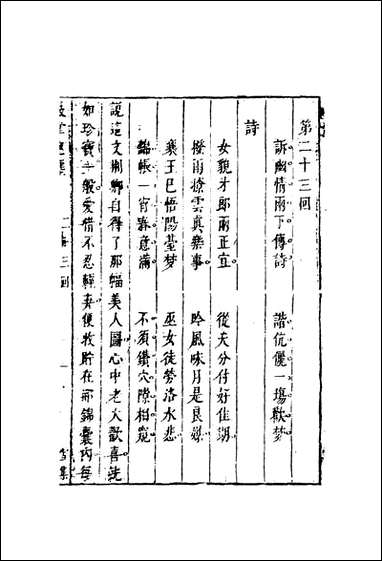 第二十三回
訴幽情兩下傳詩　諧伉儷一場歡梦
詩
女貌才郎兩正宜　從天分付好佳期
撥雨撩雲真樂事　吟風味月是良媒
襄王已悟陽臺梦　巫女徒勞洛水悲
錦帳一宵春意滿　不須鑽穴隙相窺
說這文荆卿自得了那幅美人圖心中老大歡喜洗
如珍寶一般愛惜不忍輕弃便收貯在那錦囊內每
二十三回